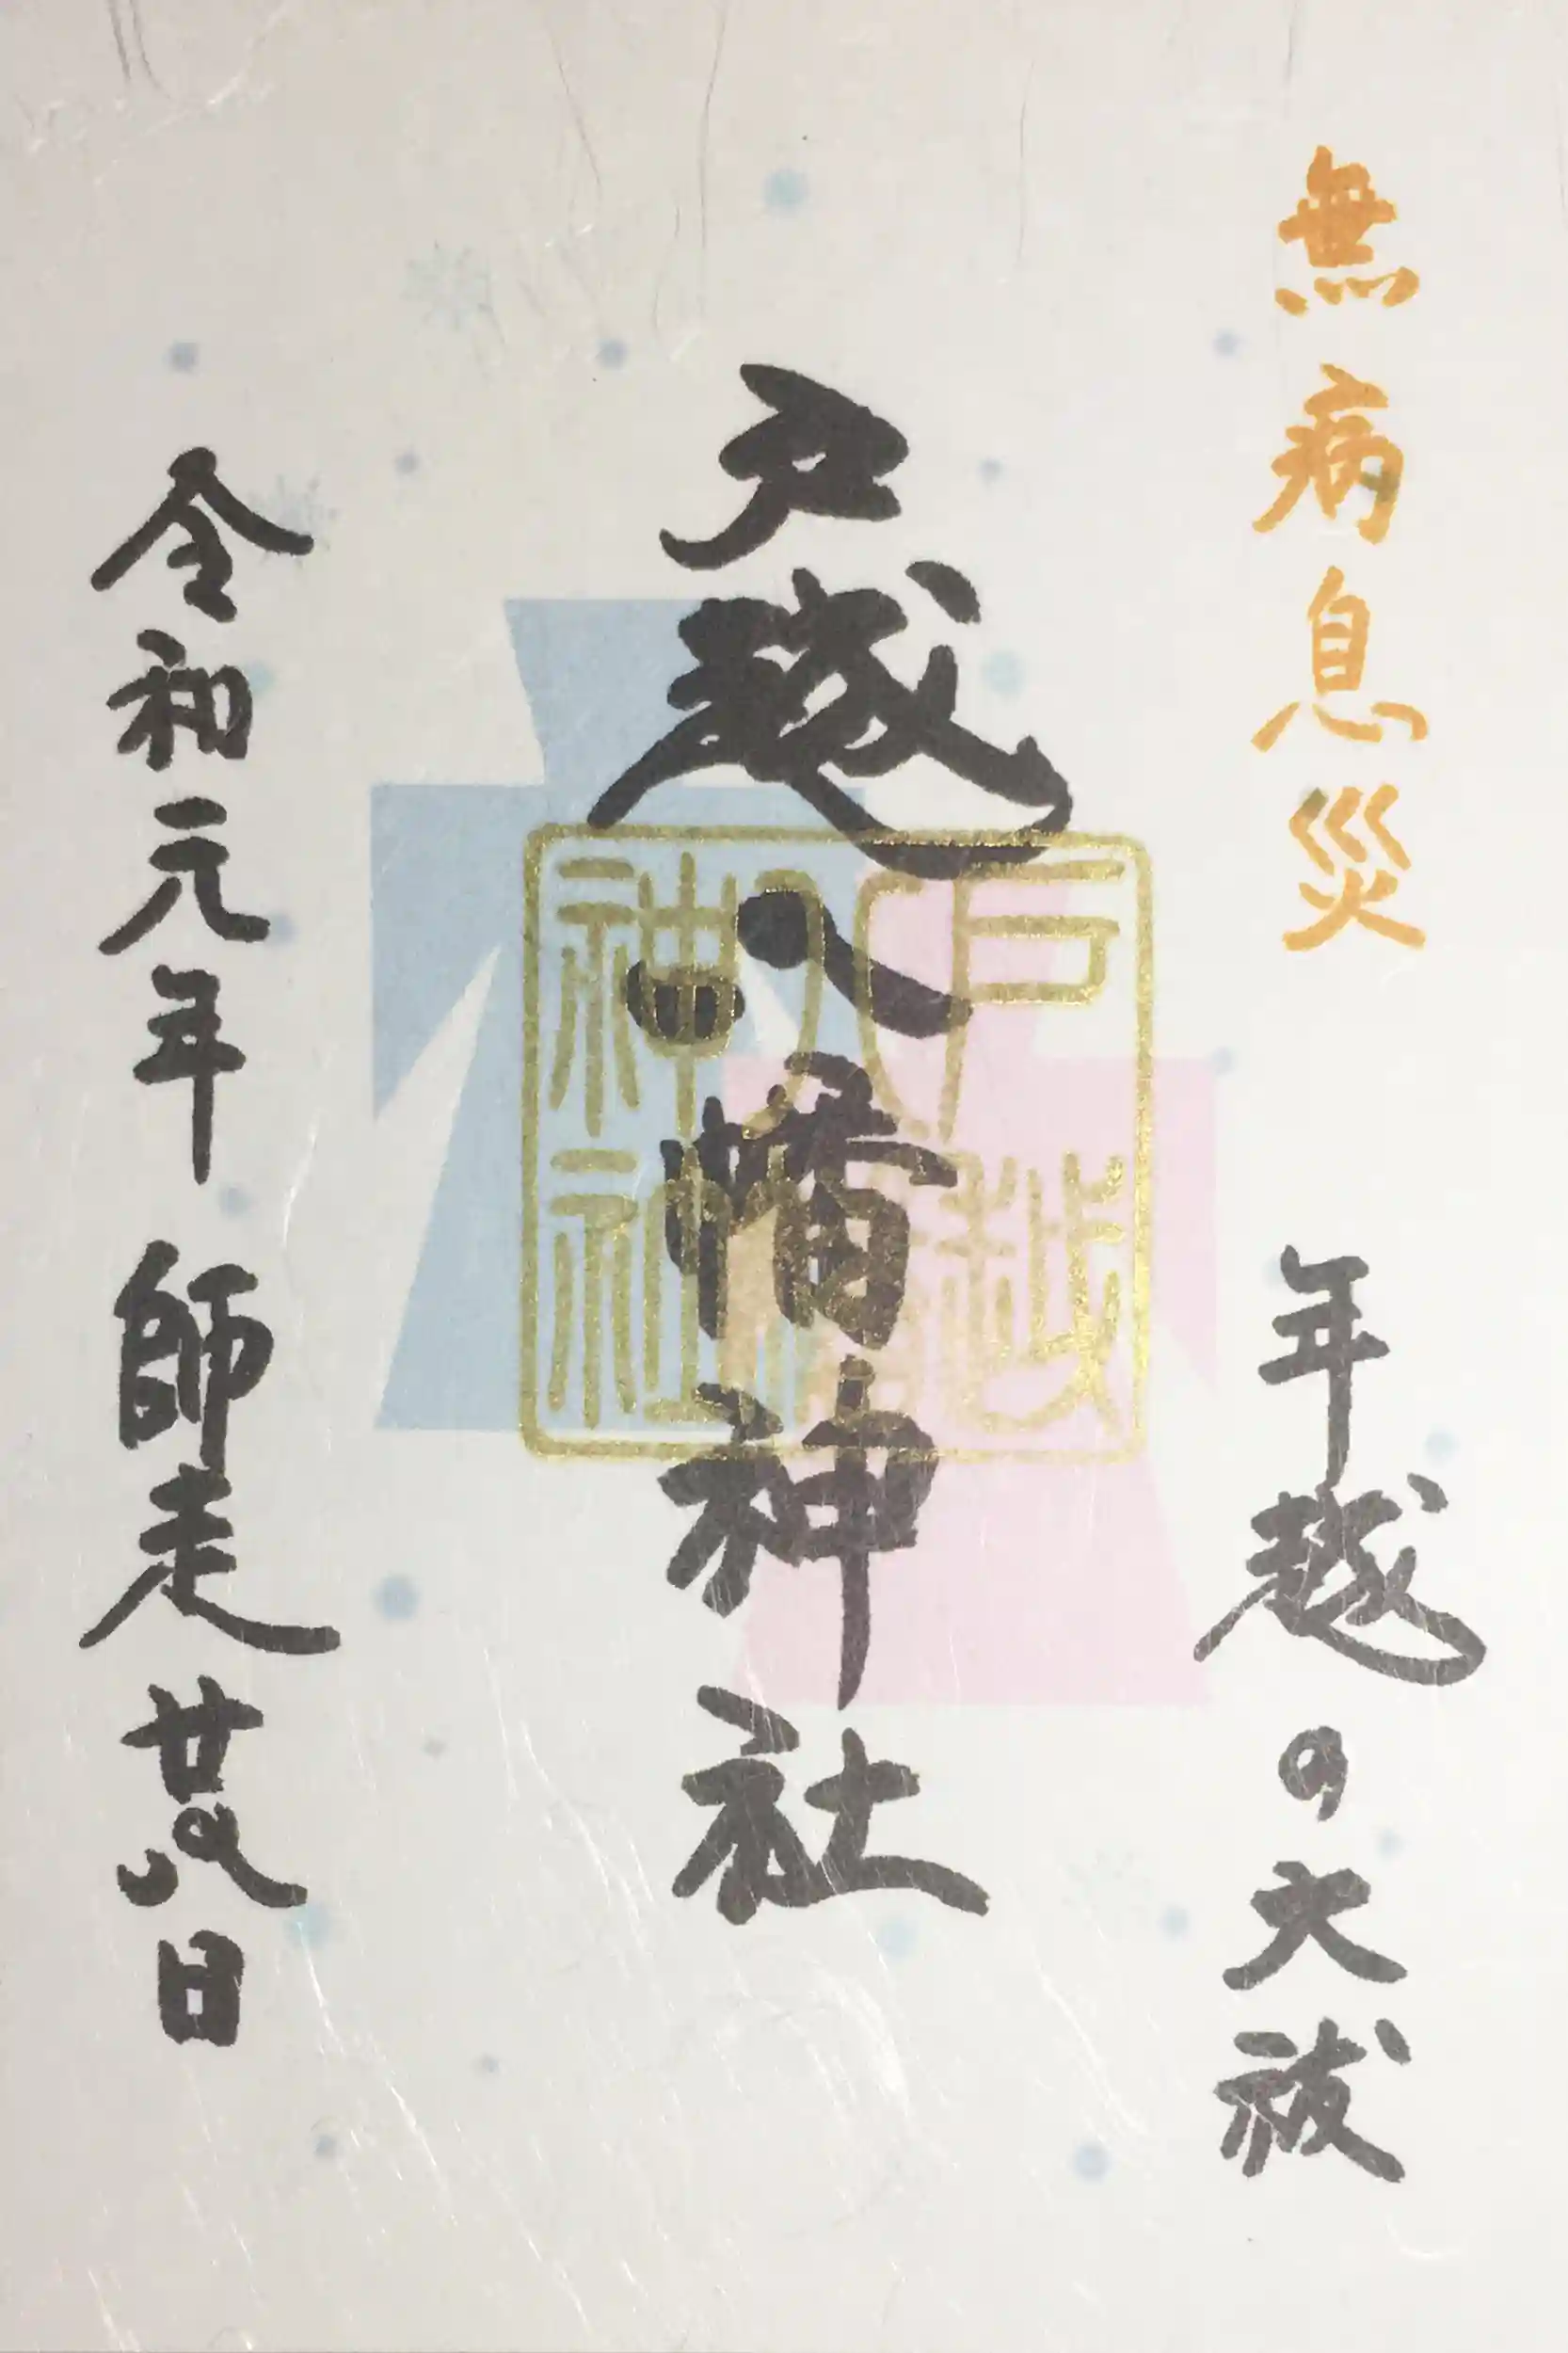 無病息災
年越の大祓
戸越八幡神社
戸越八幡神社
令和元年 師走 廿八日